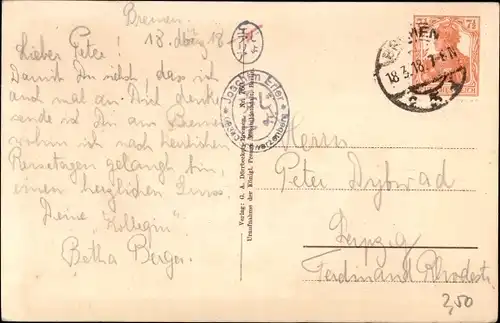 Bremen.
18. März 18.
Lieber Peter!
Damit Du siehst, dass ich
auch mal an Dich denke
sende ich Dir aus Bremen
wohin ich nach herrlichen
Reisetagen gelangt bin,
einen herzlichen Gruss.
Deine "Kollegin"
Berger
Joachim Erler
Verlag: G. A. Dörrbecker, Bremen. No.
Uraufnahme der Königl. Preuss.
BREMEN
18.3.18. 7-8 N
7½ 7½
Herrn
Peter Dybwad
Leipzig
Ferdinand Rhodestr.
2,50